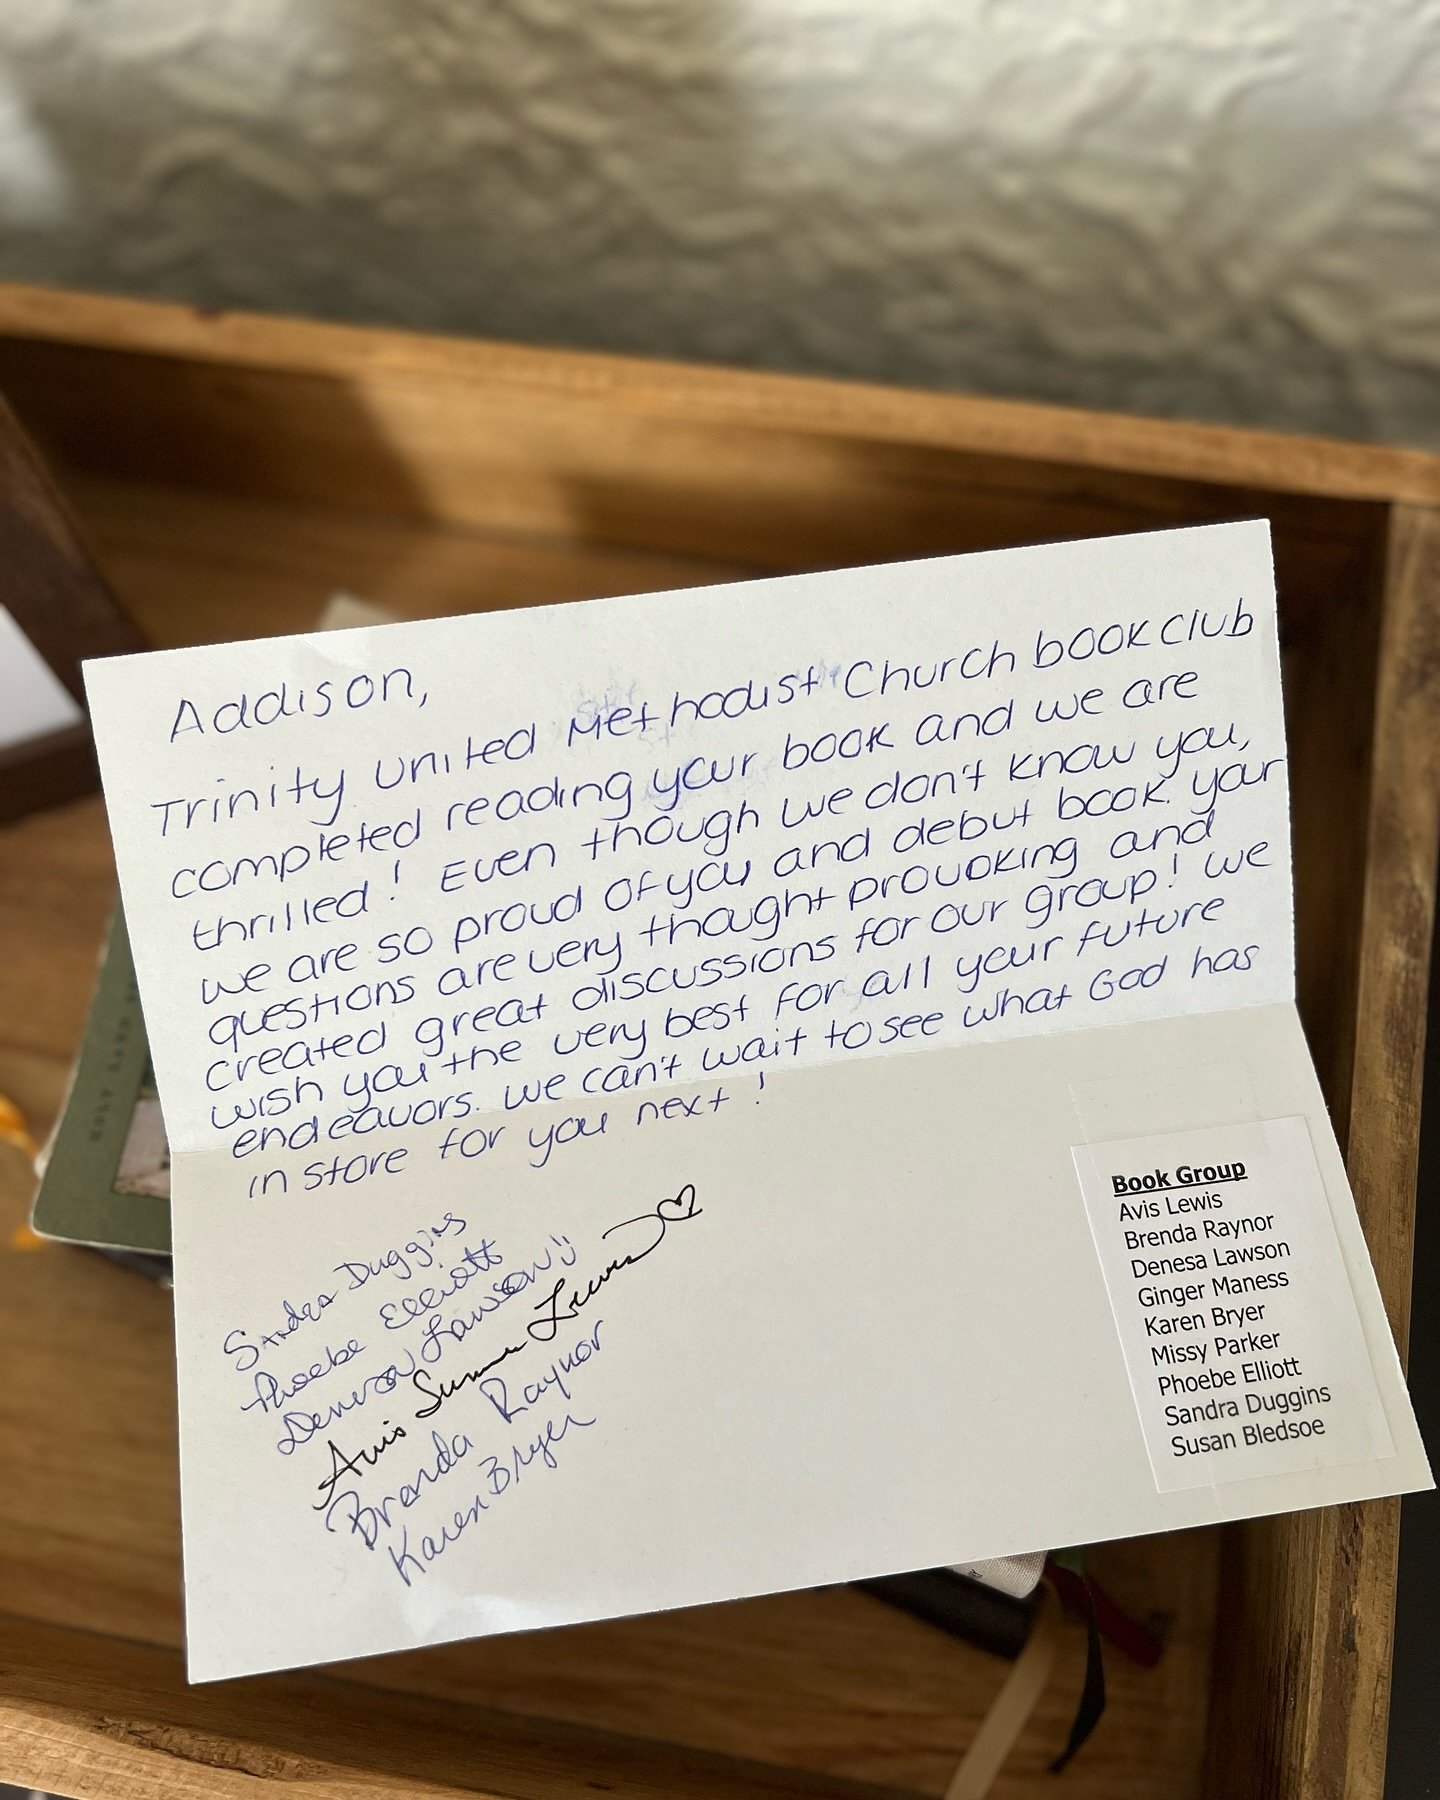 Addison,
Trinity United Methodist Church book club
completed reading your book and we are
thrilled! Even though we don't know you,
we are so proud of you and debut book. your
questions are very thought provoking and
created great discussions for our group! we
wish you the very best for all your future
endeavors. we can't wait to see what God has
in store for you next!
Sandra Duggins
Phoebe Elliott
Denesa Lawson
Avis Sumner Lewis
Brenda Raynor
Karen Bryer
Book Group
Avis Lewis
Brenda Raynor
Denesa Lawson
Ginger Maness
Karen Bryer
Missy Parker
Phoebe Elliott
Sandra Duggins
Susan Bledsoe
HOLY LAND